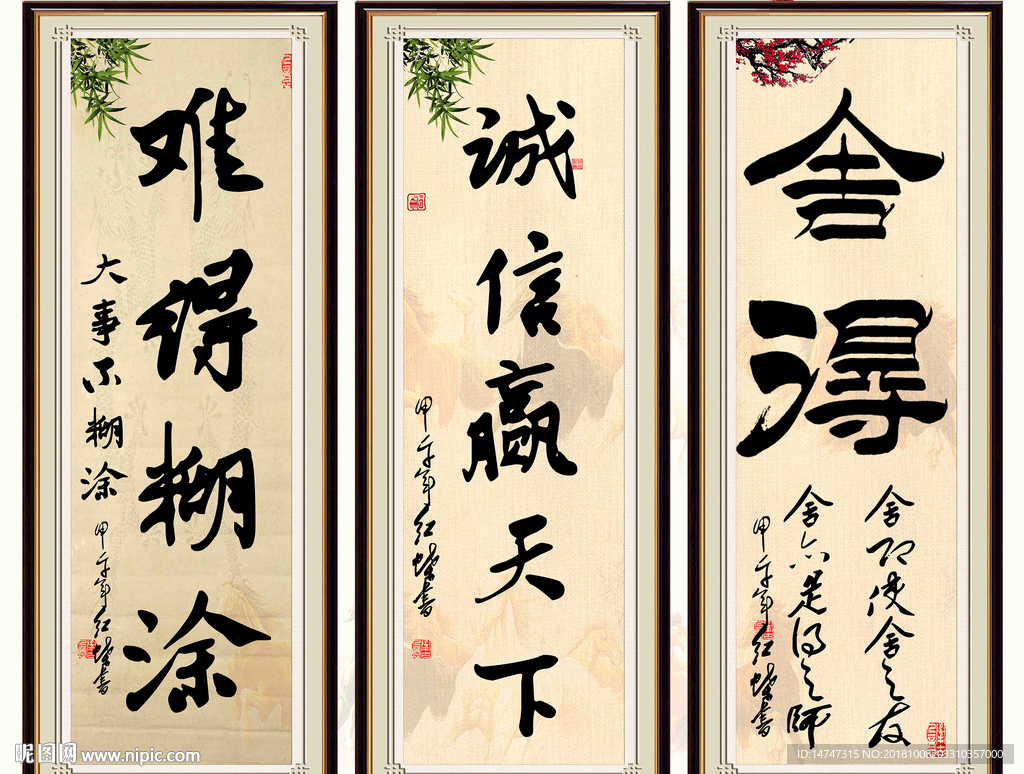 难得糊涂
大事不糊涂
甲午年红蝶书
诚信赢天下
甲午年红蝶书
舍淂
舍即使舍之友
舍亦是得之师
甲午年红蝶书
昵图网 www.nipic.com
ID:14747315 NO:20181008203310357000